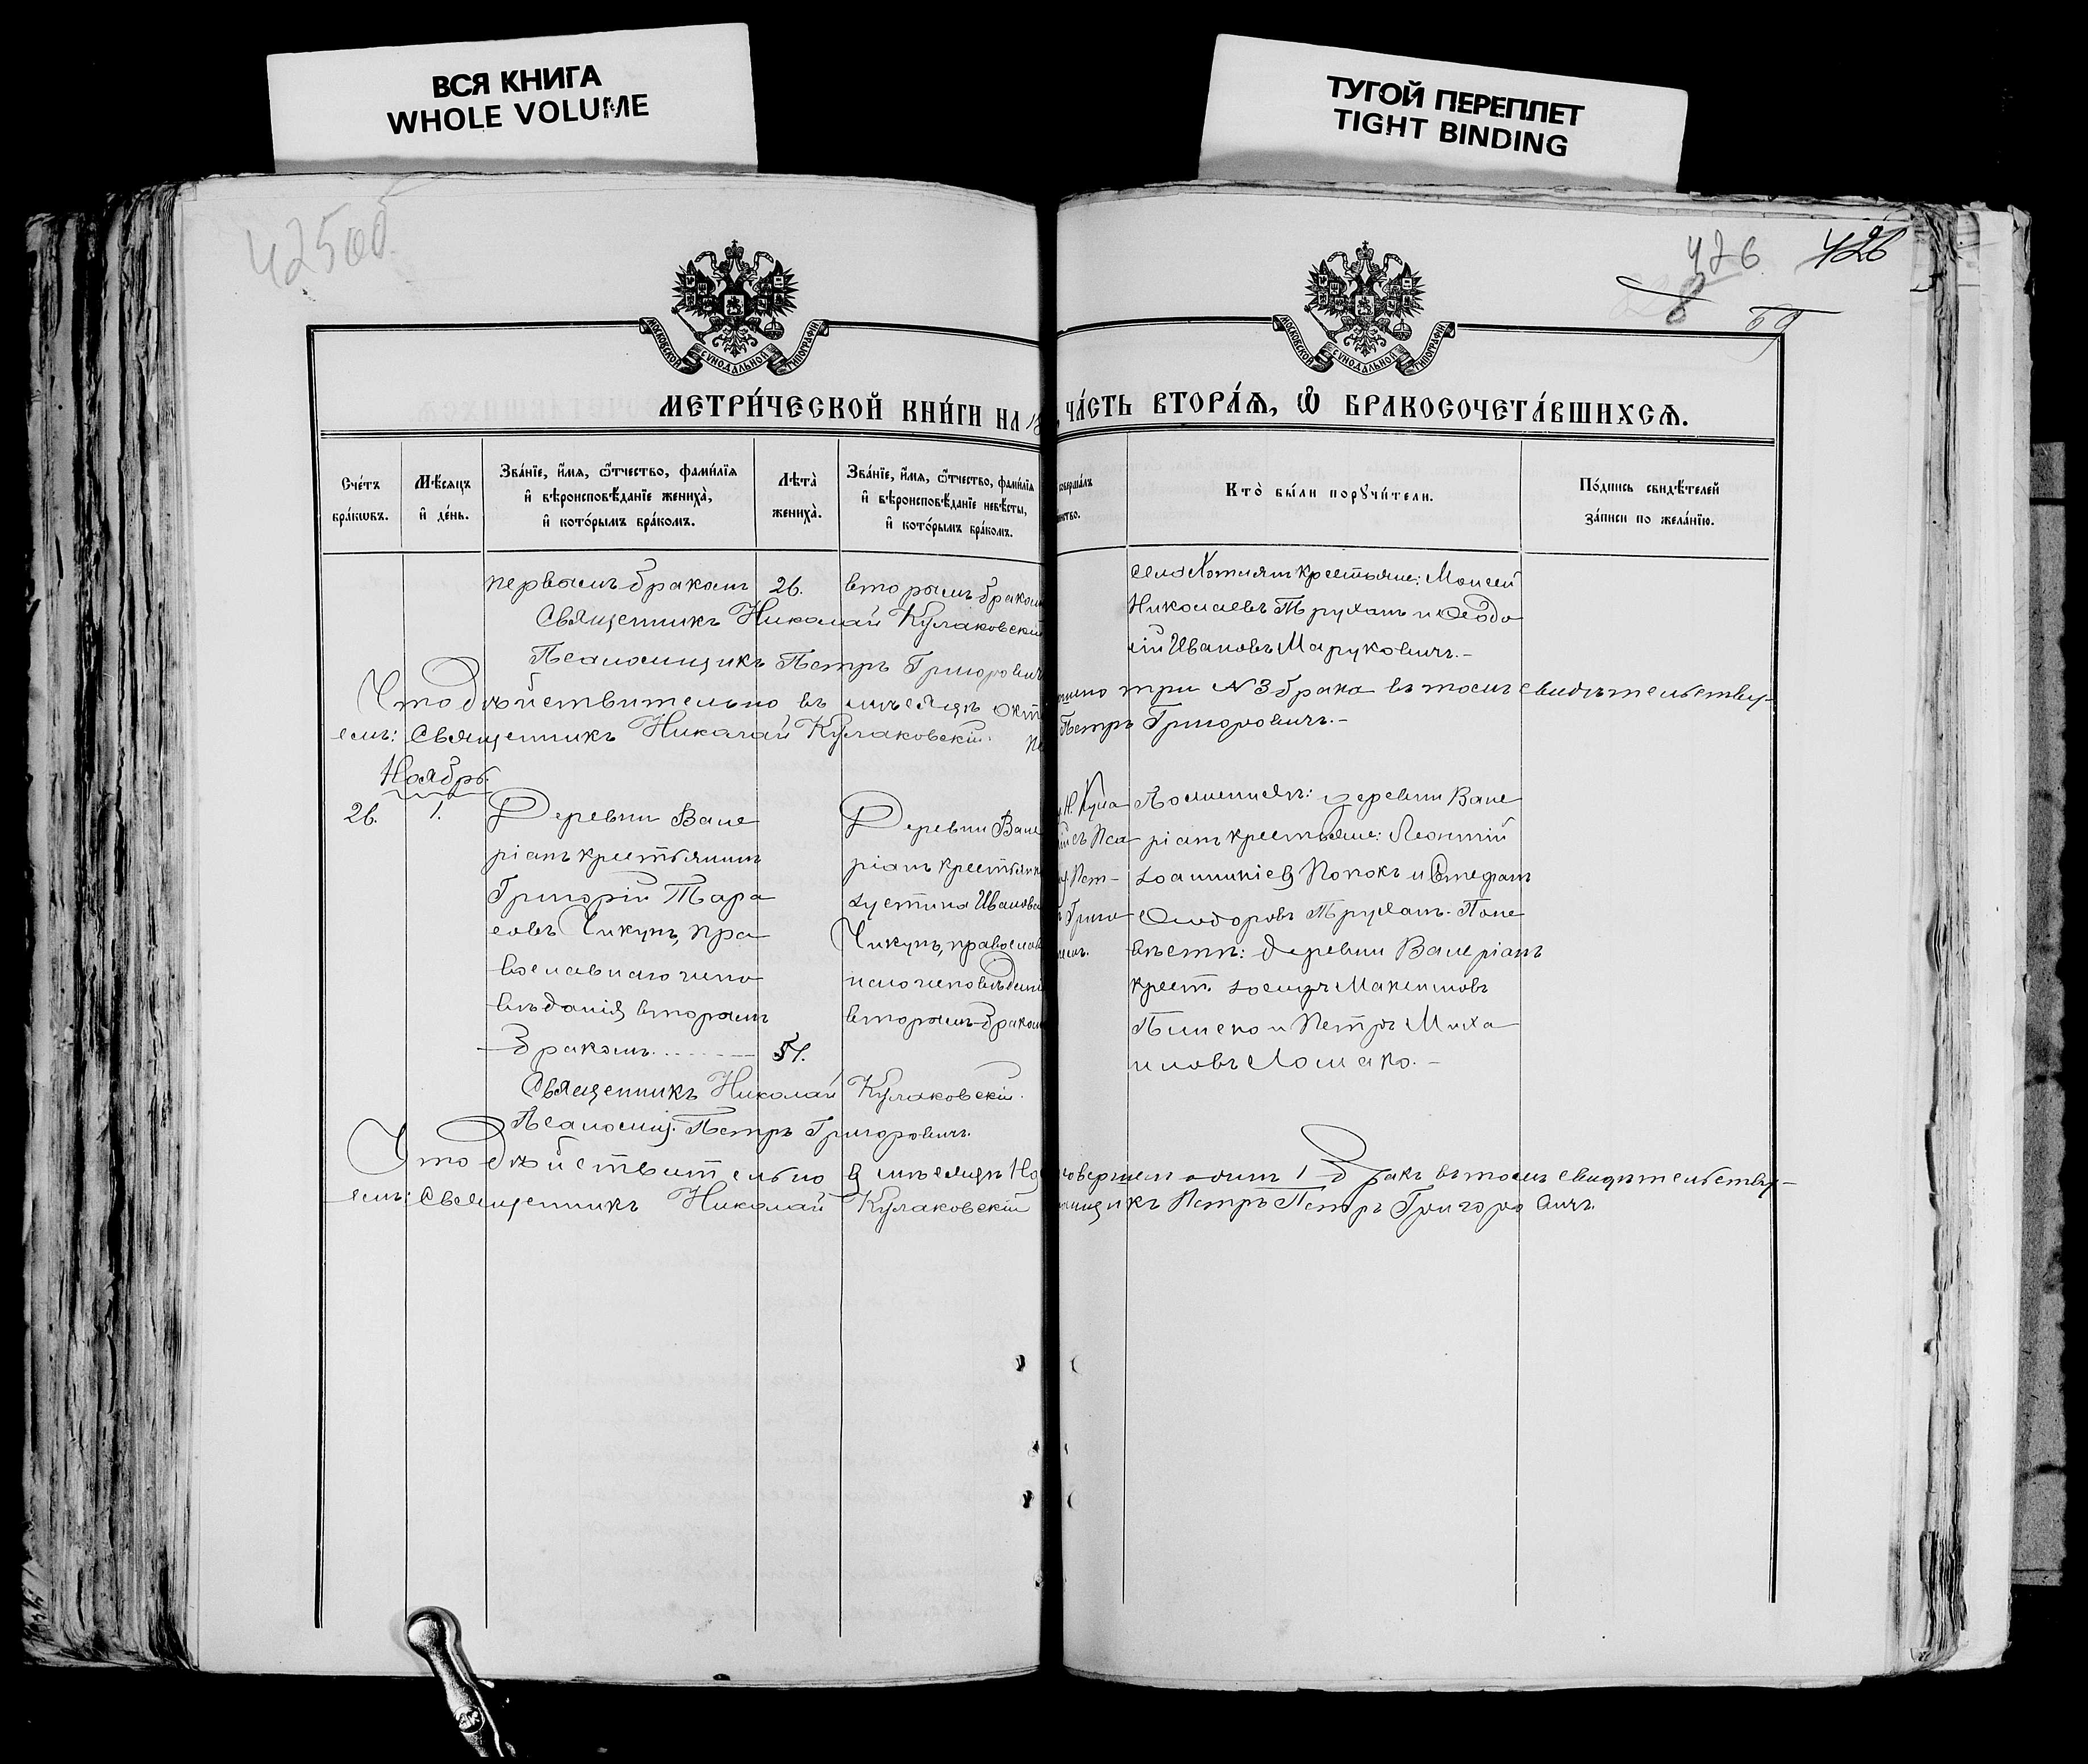 ВСЯ КНИГА
WHOLE VOLUME
ТУГОЙ ПЕРЕПЛЕТ
TIGHT BINDING
42500
426
426
8
59
МОСКОВСКОЙ СУНОДАЛЬНОЙ ТИПОГРАФІИ
МОСКОВСКОЙ СУНОДАЛЬНОЙ ТИПОГРАФІИ
МЕТРИ́ЧЕСКОЙ КНИ́ГИ НА 18
ЧА́СТЬ ВТОРА́Ѧ, Ѽ БРАКОСОЧЕТА́ВШИХСѦ.
Сче́тъ
бра́кѡвъ.
Мѣ́сяцъ
и҆ де́нь.
Зва́нїе, и҆́мѧ, ѻ҆́тчество, фами́лїѧ
и҆ вѣроисповѣ́данїе жениха̀,
и҆ кото́рымъ бра́комъ.
Лѣта̀
жениха̀.
Зва́нїе, и҆́мѧ, ѻ҆́тчество, фами́лїѧ
и҆ вѣроисповѣ́данїе невѣ́сты,
и҆ кото́рымъ бра́комъ.
совершалъ
Кто̀ бы́ли порꙋчи́тели.
По́дпись свидѣ́телей
за́писи по жела́нїю.
первымъ бракомъ
26.
вторымъ браком
Священникъ Николай Кулаковскій
Псаломщикъ Петръ Григорович
села Хотлянъ крестьяне: Моисей
Николаевъ Труханъ и Ѳеодо
сій Ивановъ Марукович.-
Что действительно въ месяцѣ Окт
три №3 брака въ томъ свидѣтельству-
емъ: Священникъ Николай Кулаковскій.
Петръ Григоровичъ.-
Ноябрь.
26.
1.
Деревни Вале
ріанъ крестьянинъ
Григорій Тара
совъ Чикунъ, пра
вославнаго испо
вѣданія вторымъ
бракомъ.
51.
Деревни Вале
ріанъ крестьянк
Іустина Иванова
Чикунъ, православ
наго исповѣдані
вторымъ браком
Н. Кула
съ Пса
Пет-
Григо
По женихѣ: деревни Вале
ріанъ крестьяне: Леонтій
Іоанникіев Попокъ и Стефанъ
Ѳеодоровъ Труханъ. По не
вѣстѣ: деревни Валеріанъ
крест. Іосифъ Максимовъ
и Петръ Миха
иловъ Ломако.-
Священникъ Николай Кулаковскій.
Псаломщ. Петръ Григоровичъ.
Что действительно въ месяцѣ Но
совершен один 1 бракъ въ томъ свидѣтельству-
емъ: Священникъ Николай Кулаковскій
мщикъ Петръ Петръ Григоровичъ.